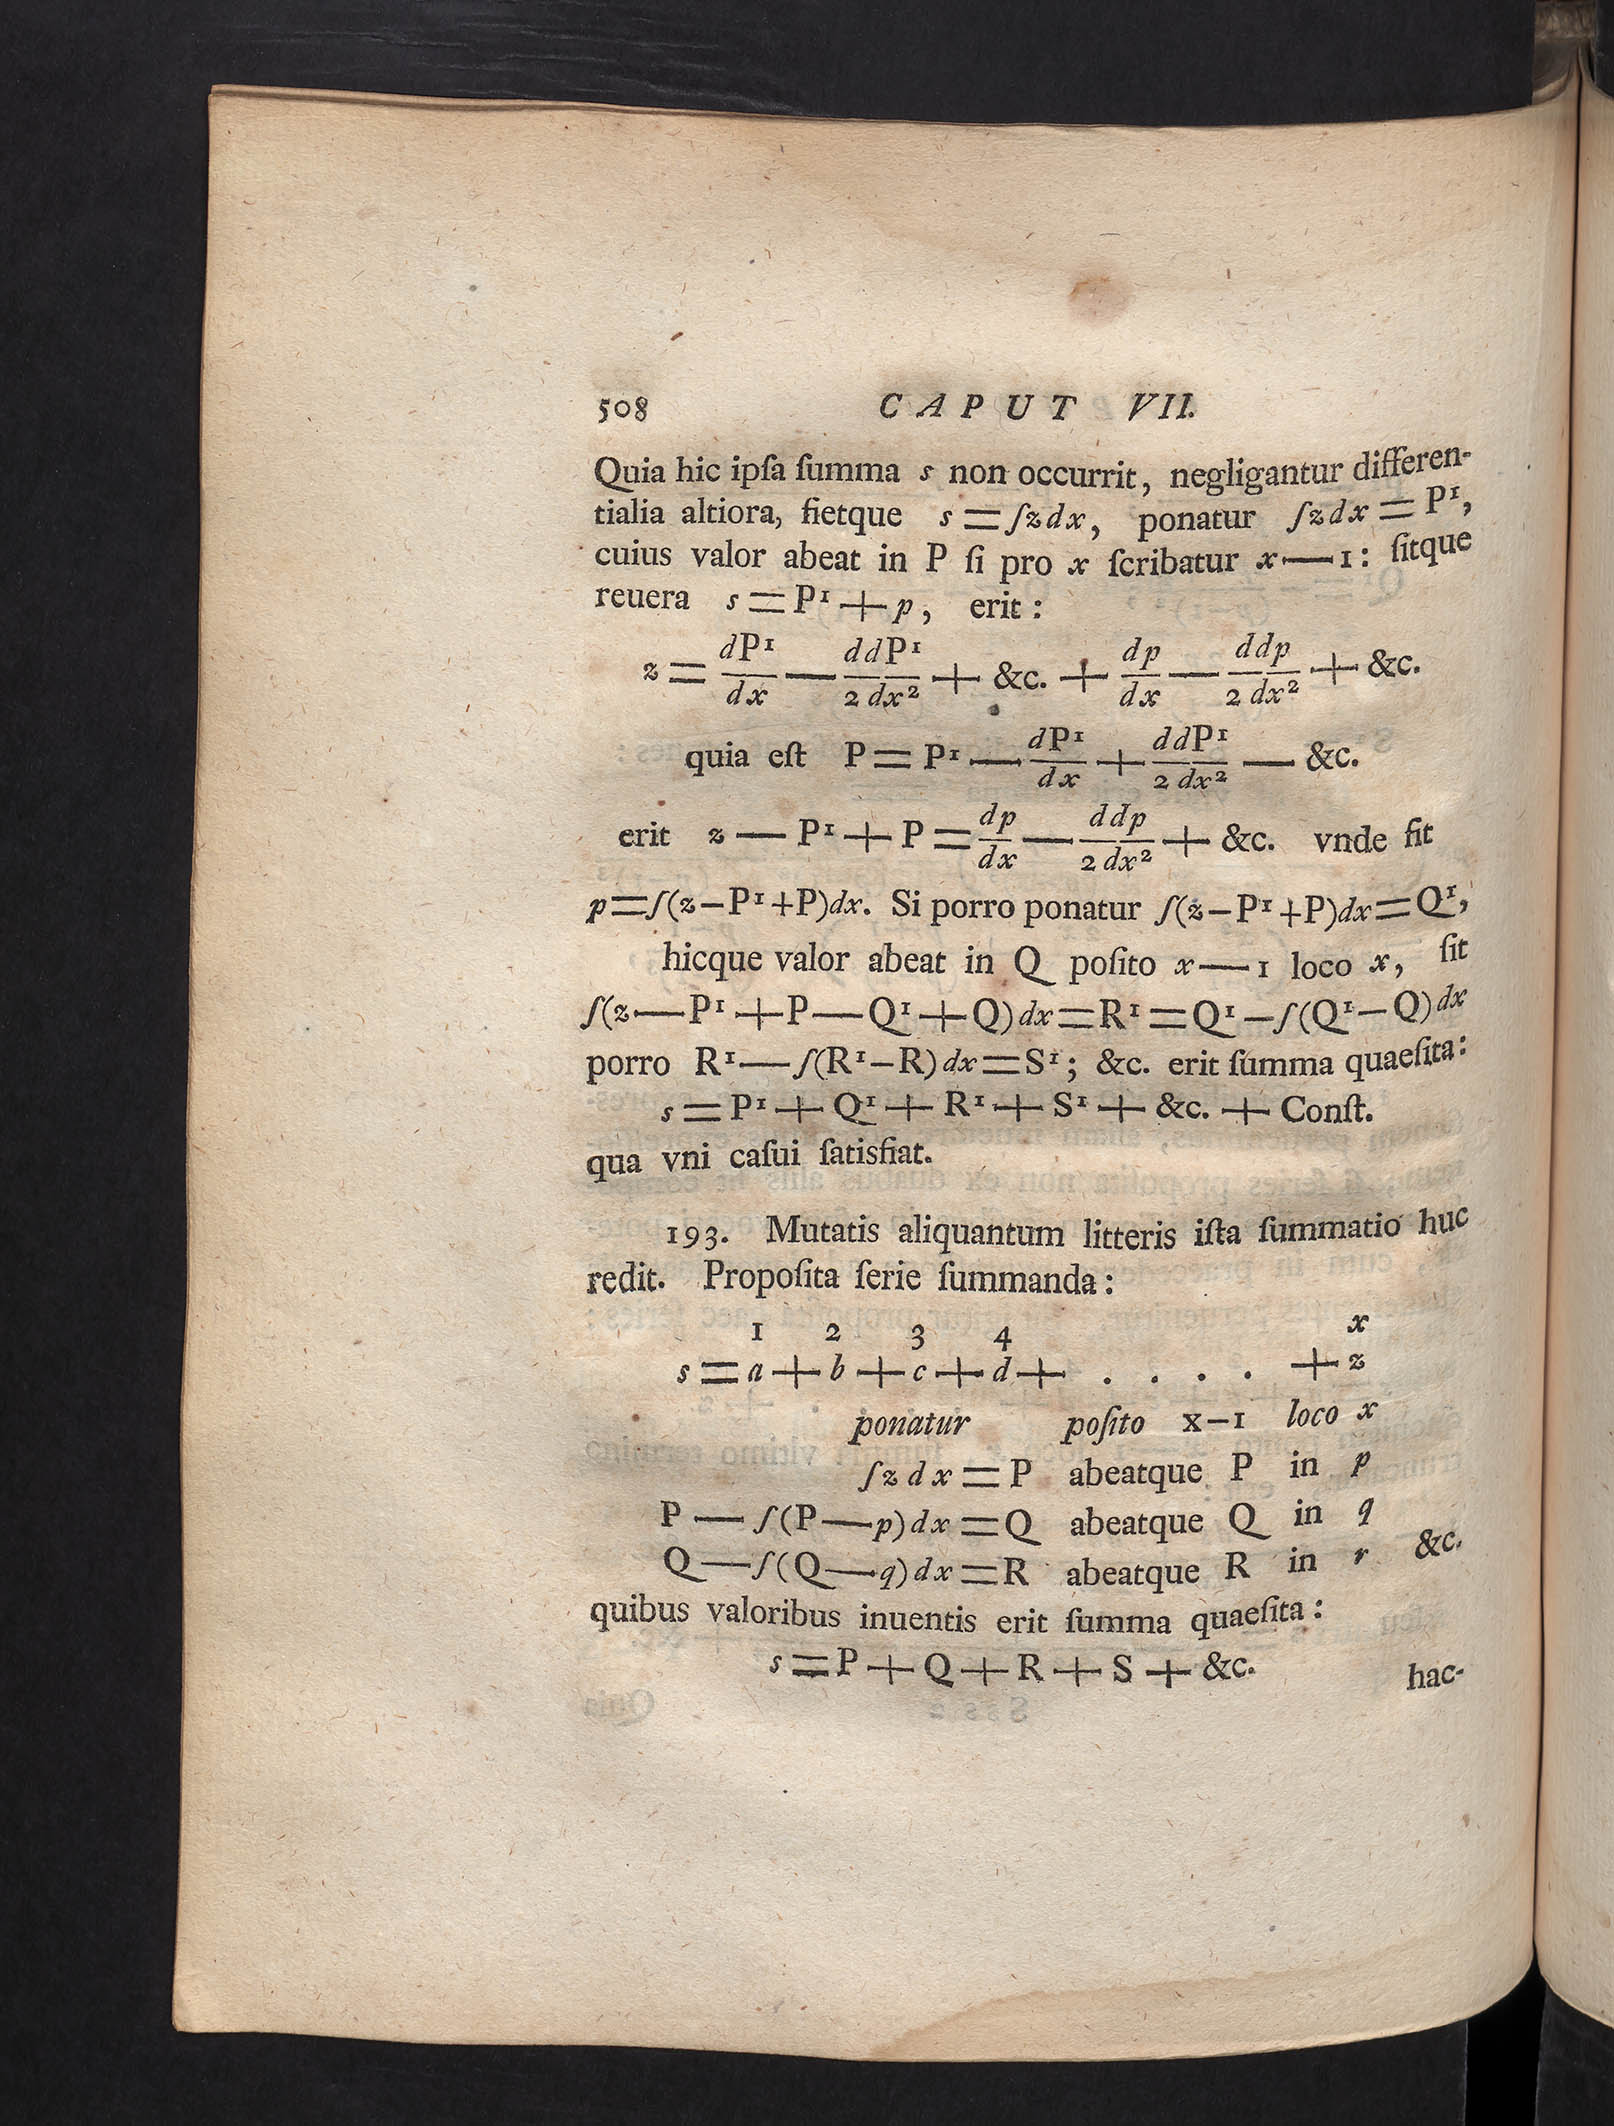 508 CAPUT VII.
Quia hic ipſa ſumma s non occurrit, negligantur differen-
tialia altiora, fietque s = ∫zdx, ponatur ∫zdx = P¹,
cuius valor abeat in P ſi pro x ſcribatur x — 1: ſitque
reuera s = P¹ + p, erit:
z = dP¹/dx — ddP¹/2dx² + &c. + dp/dx — ddp/2dx² + &c.
quia eſt P = P¹ — dP¹/dx + ddP¹/2dx² — &c.
erit z — P¹ + P = dp/dx — ddp/2dx² + &c. vnde fit
p = ∫(z – P¹ + P)dx. Si porro ponatur ∫(z – P¹ + P)dx = Q¹,
hicque valor abeat in Q poſito x — 1 loco x, ſit
∫(z — P¹ + P — Q¹ + Q)dx = R¹ = Q¹ – ∫(Q¹ – Q)dx
porro R¹ — ∫(R¹ – R)dx = S¹; &c. erit ſumma quaeſita:
s = P¹ + Q¹ + R¹ + S¹ + &c. + Conſt.
qua vni caſui ſatisfiat.
193. Mutatis aliquantum litteris iſta ſummatio huc
redit. Propoſita ſerie ſummanda:
1 2 3 4 x
s = a + b + c + d + . . . . + z
ponatur poſito x – 1 loco x
∫zdx = P abeatque P in p
P — ∫(P — p)dx = Q abeatque Q in q
Q — ∫(Q — q)dx = R abeatque R in r &c.
quibus valoribus inuentis erit ſumma quaeſita:
s = P + Q + R + S + &c.
hac-